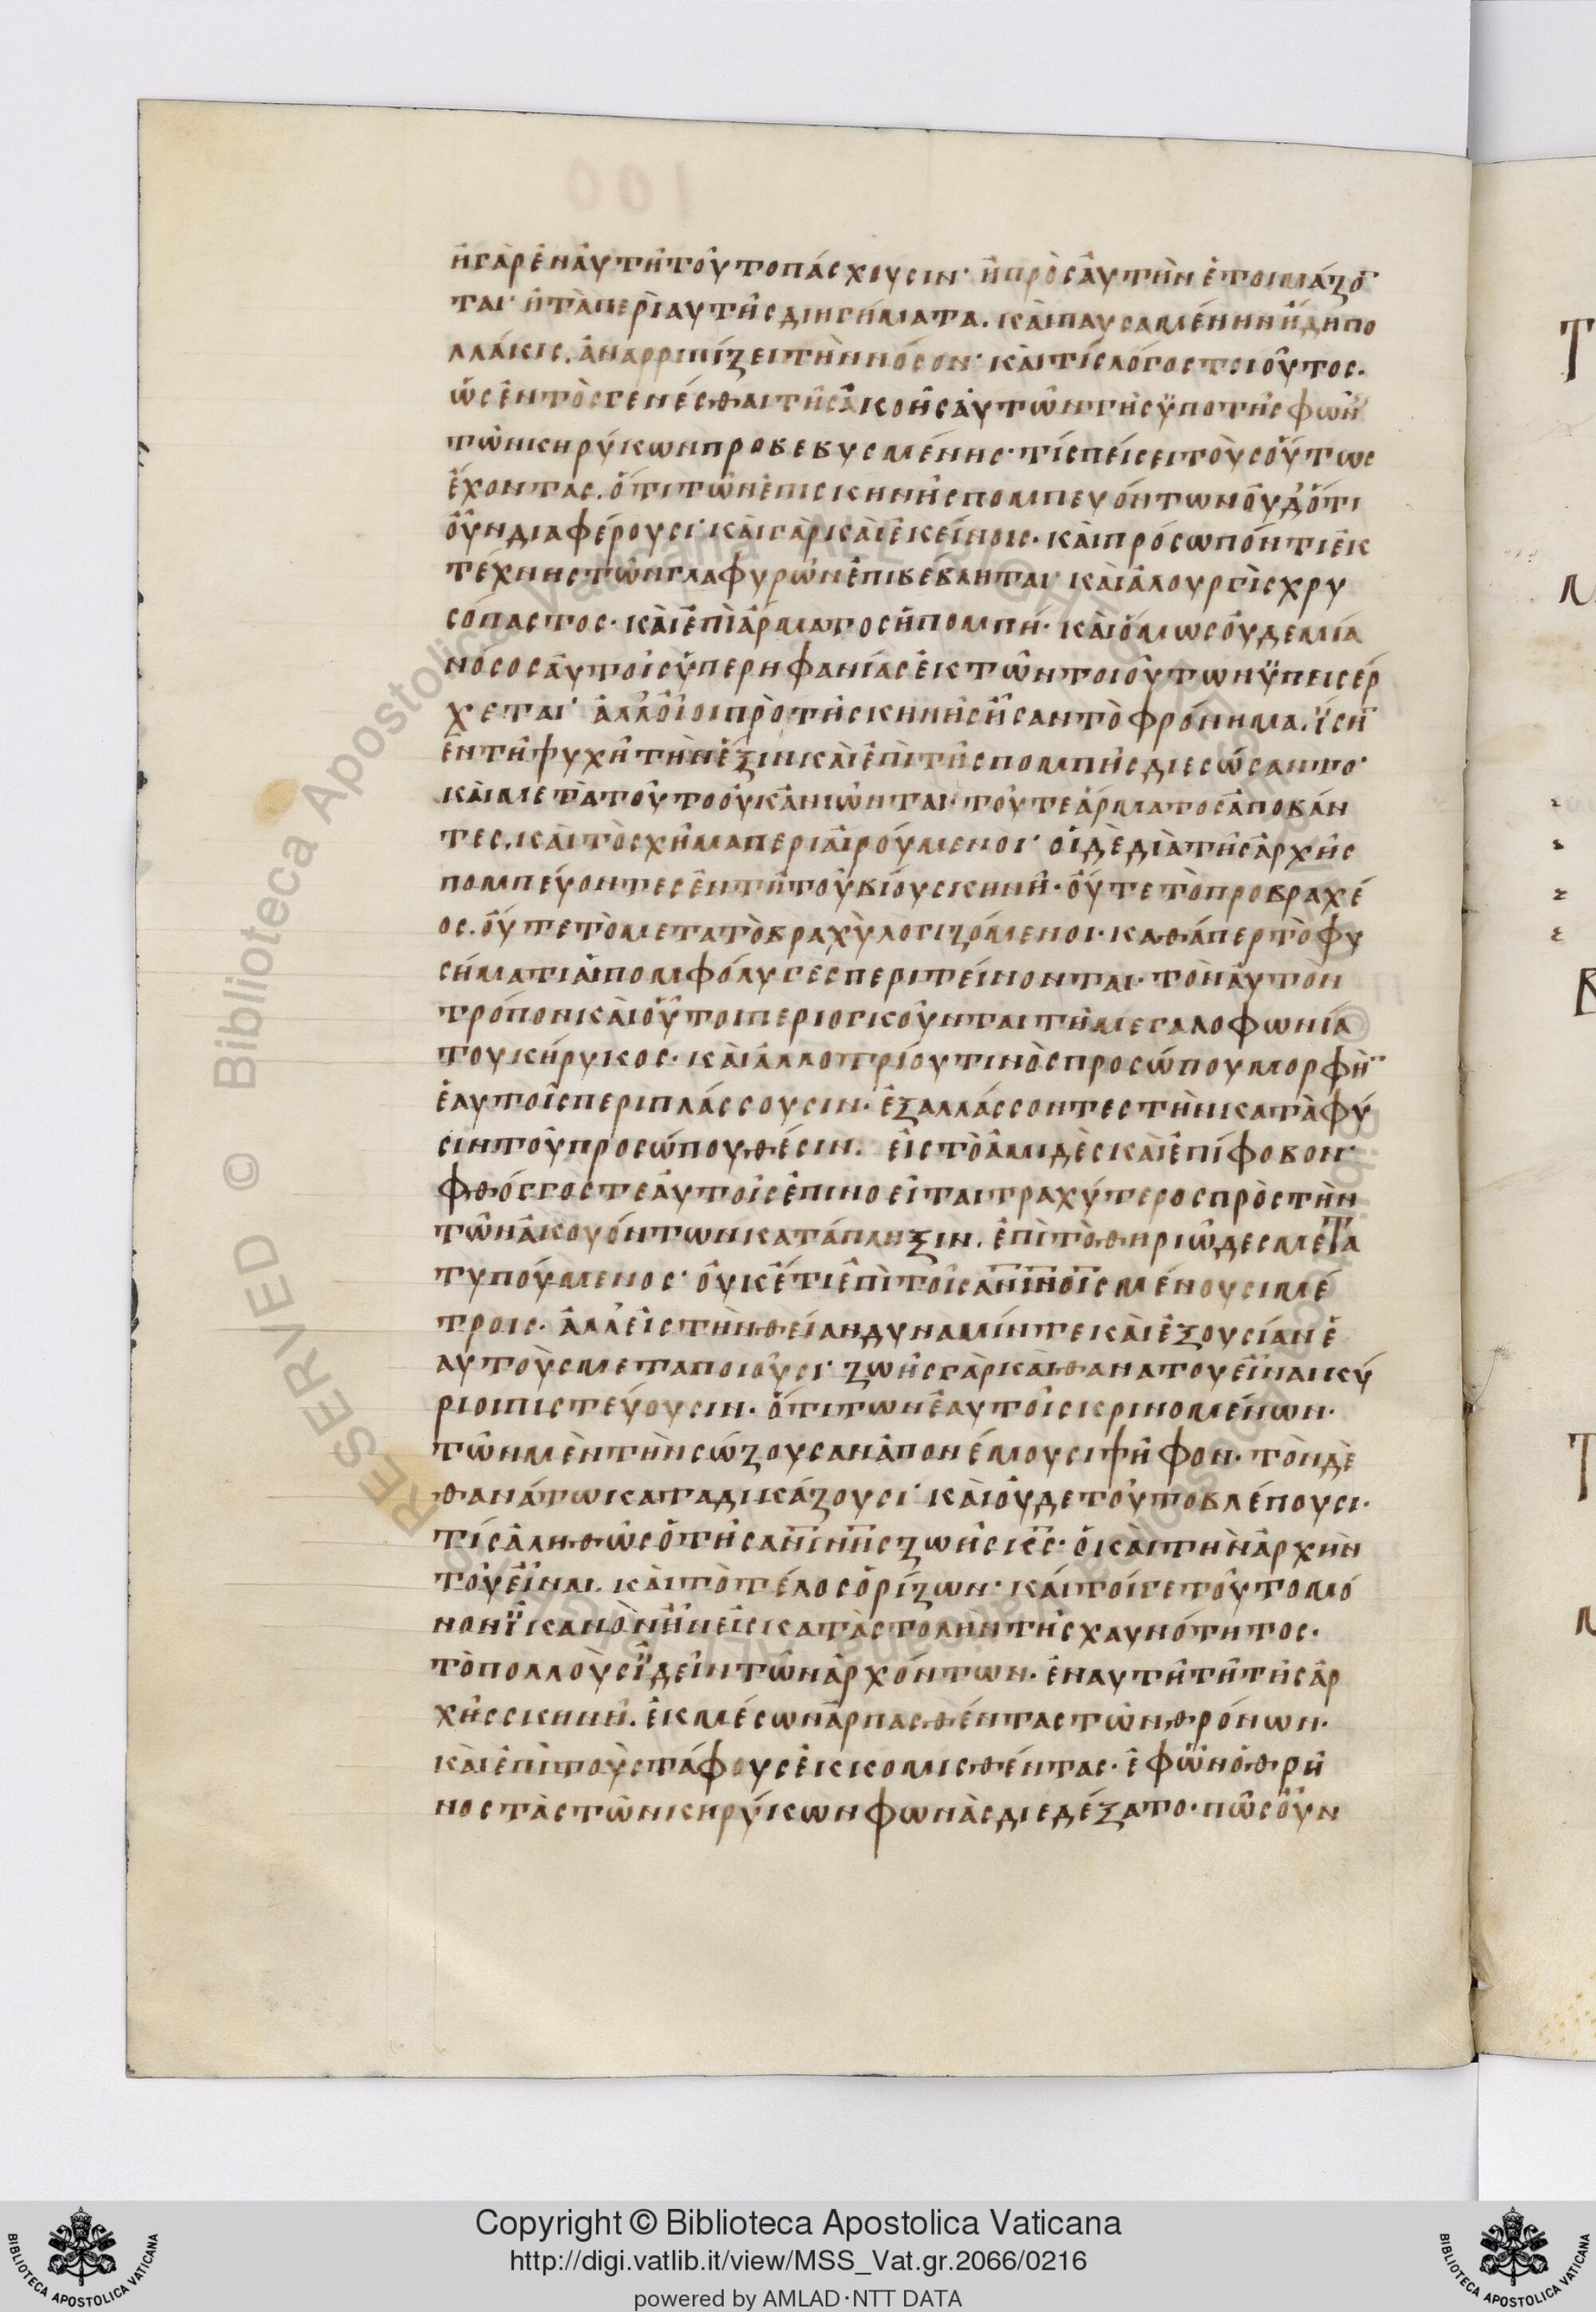 ἢ γὰρ ἐν αὐτῇ τοῦτο πάσχουσιν· ἢ πρὸς αὐτὴν ἑτοιμάζο̅
ται· ἢ τὰ περὶ αὐτῆς διηγήματα. καὶ παυσαμένην ἤδη πο
λλάκις. ἀναρριπίζει τὴν νόσον· καὶ τίς λόγος τοιοῦτος.
ὡς ἐντὸς γενέσθαι τῆς ἀκοῆς αὐτῶν τῆς ϋπὸ τῆς φωνῆ
τῶν κηρύκων προβεβυσμένης· τίς πείσει τοὺς οὕτως
ἔχοντας. ὅτι τῶν ἐπὶ σκηνῆς πομπευόντων οὐδ' ὅτι
οὖν διαφέρουσι· καὶ γὰρ καὶ ἐκείνοις· καὶ πρόσωπόν τι ἐκ
τέχνης τῶν γλαφυρῶν ἐπιβέβληται· καὶ ἁλουργὶς χρυ
σόπαστος· καὶ ἐπὶ ἅρματος ἡ πομπή· καὶ ὅμως οὐδεμία
νόσος αὐτοῖς ὑπερηφανίας ἐκ τῶν τοιούτων ϋπεισέρ
χεται· ἀλλ' οἷοι πρὸ τῆς σκηνῆς ἦσαν τὸ φρόνημα. ϊση̅
ἐν τῇ ψυχῇ τὴν ἕξιν καὶ ἐπὶ τῆς πομπῆς διεσώσαντο·
καὶ μετὰ τοῦτο οὐκ ἀνιῶνται· τοῦ τε ἅρματος ἀποβάν
τες. καὶ τὸ σχῆμα περιαιρούμενοι· οἱ δὲ διὰ τῆς ἀρχῆς
πομπεύοντες ἐν τῇ τοῦ βίου σκηνῇ· οὔτε τὸ προβραχέ
ος. οὔτε τὸ μετατὸβραχὺ λογιζόμενοι· καθάπερ τὸ φυ
σήματι αἱ πομφόλυγες περιτείνονται· τὸν αὐτὸν
τρόπον καὶ οὗτοι περιογκοῦνται τῇ μεγαλοφωνία
τοῦ κήρυκος· καὶ ἀλλοτρίου τινὸς προσώπου μορφὴ̅
ἑαυτοῖς περιπλάσσουσιν· ἐξαλλάσσοντες τὴν κατὰ φύ
σιν τοῦ προσώπου θέσιν. εἰς τὸ ἀμιδὲς καὶ ἐπίφοβον·
φθόγγος τε αὐτοῖς ἐπινοεῖται τραχύτερος πρὸς τὴν
τῶν ἀκουόντων κατάπληξιν. ἐπὶ τὸ θηριῶδες μετα
τυπούμενος· οὐκέτι ἐπὶ τοῖς α̅ν̅ι̅ν̅οις μένουσι μέ
τροις· ἀλλ' εἰς τὴν θείαν δύναμίν τε καὶ ἐξουσίαν ἑ
αυτοὺς μεταποιοῦσι· ζωῆς γὰρ καὶ θανάτου εἶναι κύ
ριοι πιστεύουσιν· ὅτι τῶν ἑαυτοῖς κρινομένων·
τῶν μὲν τὴν σώζουσαν ἀπονέμουσι ψῆφον· τὸν δὲ
θανάτωι καταδικάζουσι· καὶ οὐδὲ τοῦτο βλέπουσι·
τίς ἀληθῶς ὁ τῆς α̅ν̅ι̅ν̅ης ζωῆς κ̅ς̅· ὁ καὶ τὴν ἀρχὴν
τοῦ εἶναι. καὶ τὸ τέλος ὁρίζων· καίτοίγε τοῦτο μό
νον ϊκανὸν ἦν εἰς καταστολὴν τῆς χαυνότητος·
τὸ πολλοὺς ϊδεῖν τῶν ἀρχόντων. ἐν αὐτῇ τῇ τῆς ἀρ
χῆς σκηνῇ. ἐκ μέσων ἁρπασθέντας τῶν θρόνων·
καὶ ἐπὶ τοὺς τάφους ἐκκομισθέντας· ἐφ' ὧν ὁ θρῆ
νος τὰς τῶν κηρύκων φωνὰς διεδέξατο· πῶς οὖν
100
RESERVED © Biblioteca Apostolica Vaticana
Copyright © Biblioteca Apostolica Vaticana
http://digi.vatlib.it/view/MSS_Vat.gr.2066/0216
powered by AMLAD·NTT DATA
BIBLIOTECA APOSTOLICA VATICANA
BIBLIOTECA APOSTOLICA VATICANA